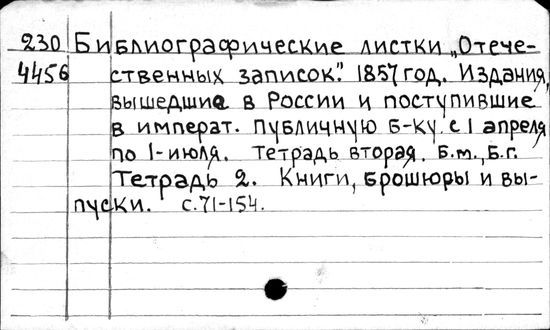 230 Библиографические листки „Отече-
4456 ственных записок". 1857 год. Издания,
вышедшие в России и поступившие
в императ. Публичную б-ку. с 1 апреля
по 1-июля. Тетрадь вторая. Б.м., Б.г.
Тетрадь 2. Книги, брошюры и вы-
пуски. с.71-154.